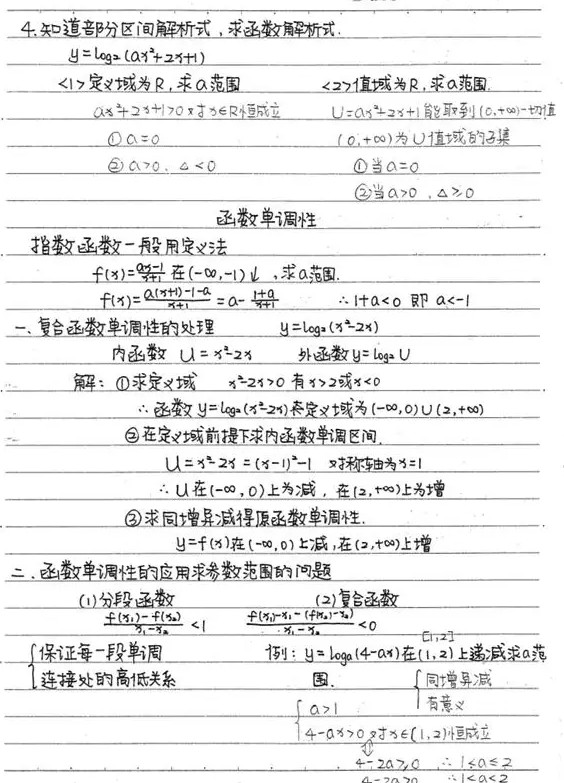 4.知道部分区间解析式，求函数解析式.
y=log₂(ax²+2x+1)
<1>定义域为R，求a范围 <2>值域为R，求a范围.
ax²+2x+1>0对x∈R恒成立 U=ax²+2x+1能取到(0,+∞)一切值
①a=0 (0,+∞)为U值域的子集
②a>0，△<0 ①当a=0
②当a>0，△≥0
函数单调性
指数函数一般用定义法
f(x)=(ax-1)/(x+1) 在(-∞,-1)↓，求a范围.
f(x)=(a(x+1)-1-a)/(x+1)=a-(1+a)/(x+1) ∴1+a<0 即 a<-1
一、复合函数单调性的处理 y=log₂(x²-2x)
内函数 U=x²-2x 外函数y=log₂U
解：①求定义域 x²-2x>0 有x>2或x<0
∴函数y=log₂(x²-2x)定义域为(-∞,0)∪(2,+∞)
②在定义域前提下求内函数单调区间.
U=x²-2x=(x-1)²-1 对称轴为x=1
∴U在(-∞,0)上为减，在(2,+∞)上为增
③求同增异减得原函数单调性.
y=f(x)在(-∞,0)上减,在(2,+∞)上增
二.函数单调性的应用求参数范围的问题
(1)分段函数 (2)复合函数
(f(x₁)-f(x₂))/(x₁-x₂)<1 (f(x₁)-x₁-(f(x₂)-x₂))/(x₁-x₂)<0
[1,2]
{保证每一段单调 例：y=logₐ(4-ax)在(1,2)上递减求a范
连接处的高低关系 围. {同增异减
有意义
{a>1
4-ax>0对x∈(1,2)恒成立
⇕
4-2a≥0 ∴1<a≤2
4-2a>0 ∴1<a<2